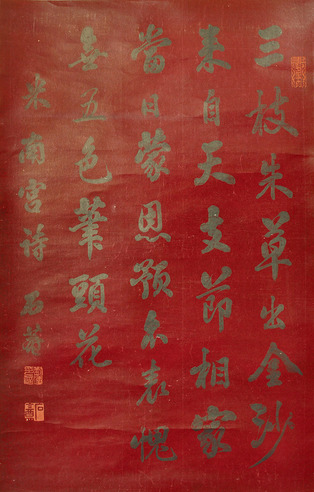 三枝朱草出金沙
来自天支節相家
當日蒙恩預名表愧
無五色筆頭花
米南宮詩 石菴